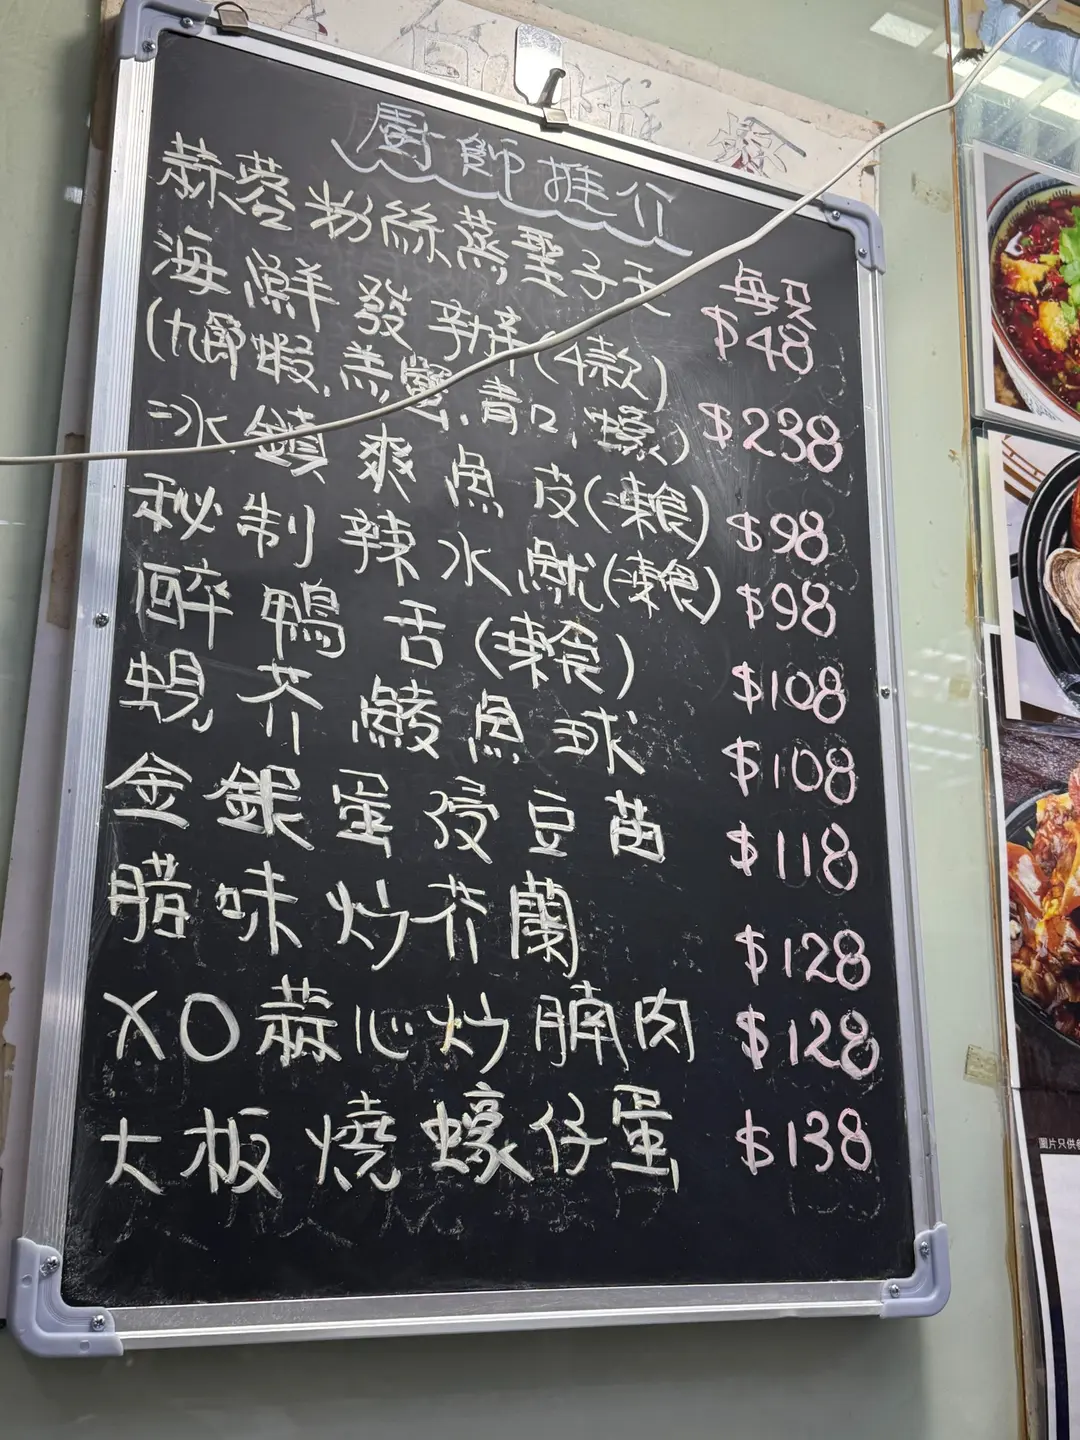 廚師推介
蒜蓉粉絲蒸聖子王 每只 $48
海鮮發辦(4款) $238
(九節蝦,羔蟹,青口,)
冰鎮爽魚皮(凍食) $98
秘制辣水魷(凍食) $98
醉鴨舌(凍食) $108
蜆芥鯪魚球 $108
金銀蛋浸豆苗 $118
腊味炒芥蘭 $128
XO蒜心炒腩肉 $128
大板燒蠔仔蛋 $138
圖片只供